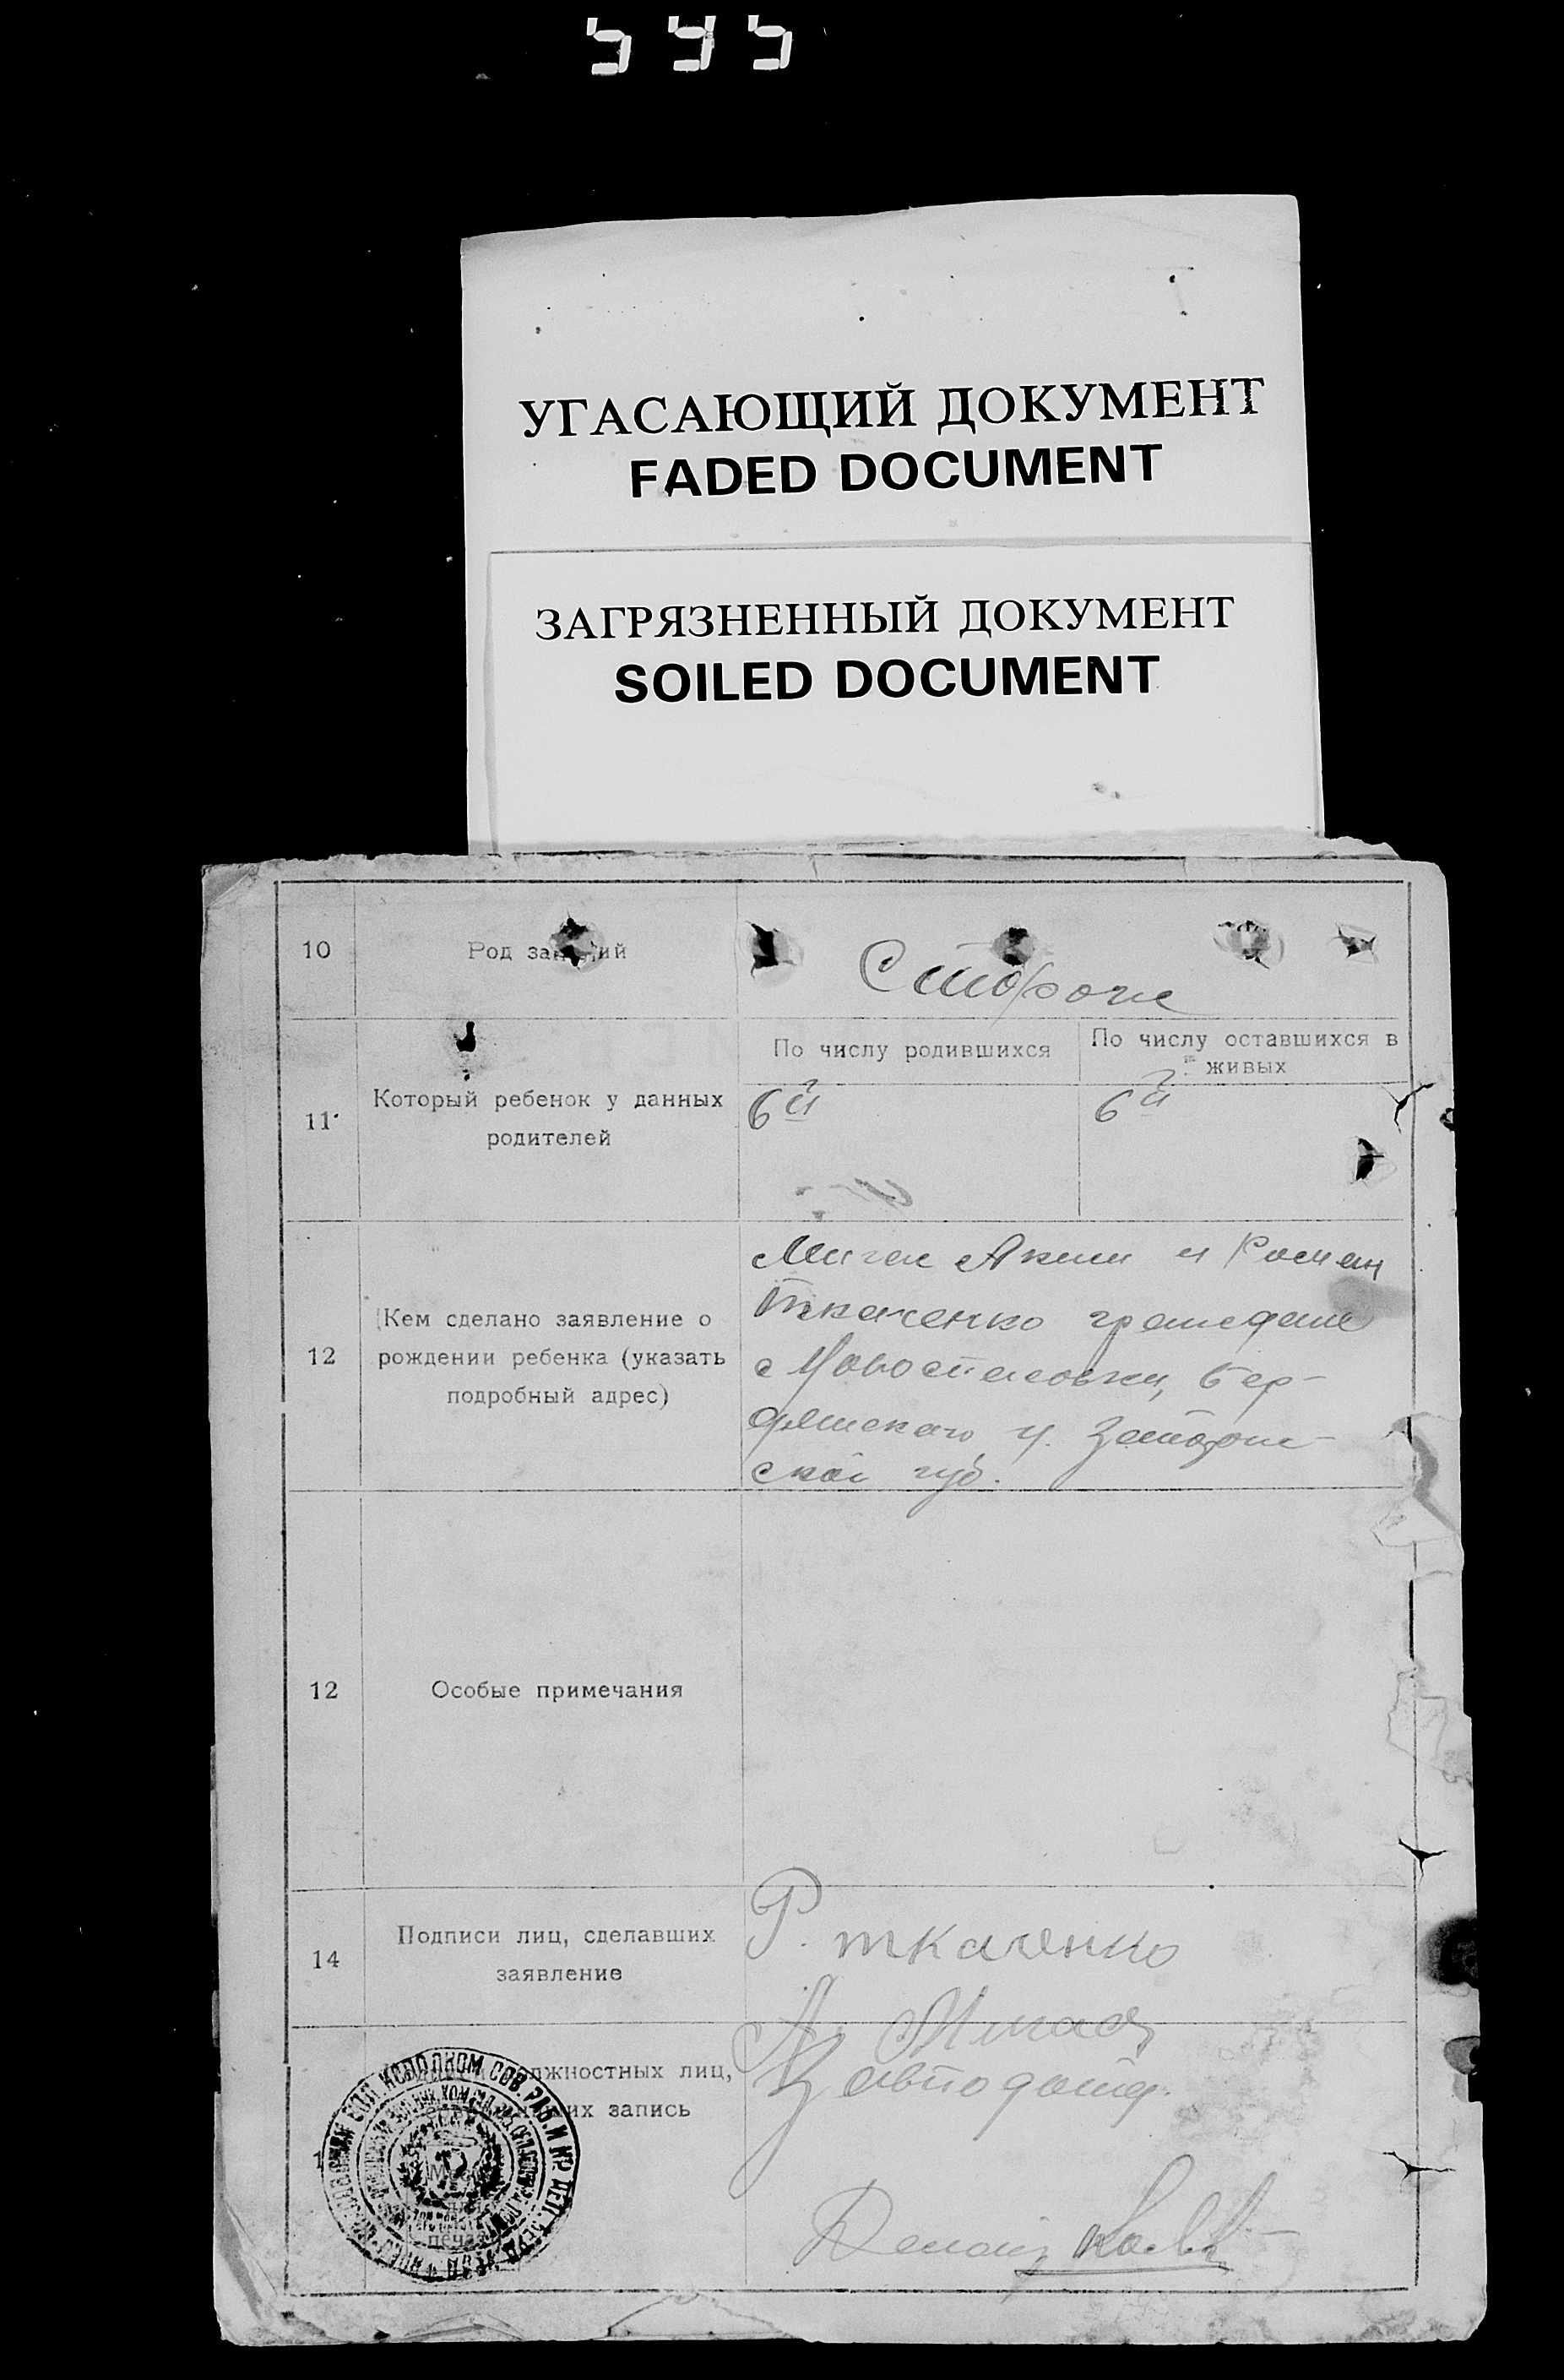 595
УГАСАЮЩИЙ ДОКУМЕНТ
FADED DOCUMENT
ЗАГРЯЗНЕННЫЙ ДОКУМЕНТ
SOILED DOCUMENT
10
Род занятий
Сторож
11
Который ребенок у данных
родителей
По числу родившихся
По числу оставшихся в
живых
6й
6й
12
Кем сделано заявление о
рождении ребенка (указать
подробный адрес)
Аким и Роман
Ткаченко граждане
с Новоспасовки, Бер-
дянского у. Запорож-
ской губ.
12
Особые примечания
14
Подписи лиц, сделавших
заявление
Р. ткаченко
А.
должностных лиц,
их запись
ИСПОЛКОМ СОВ. РАБ. И КР. ДЕП.